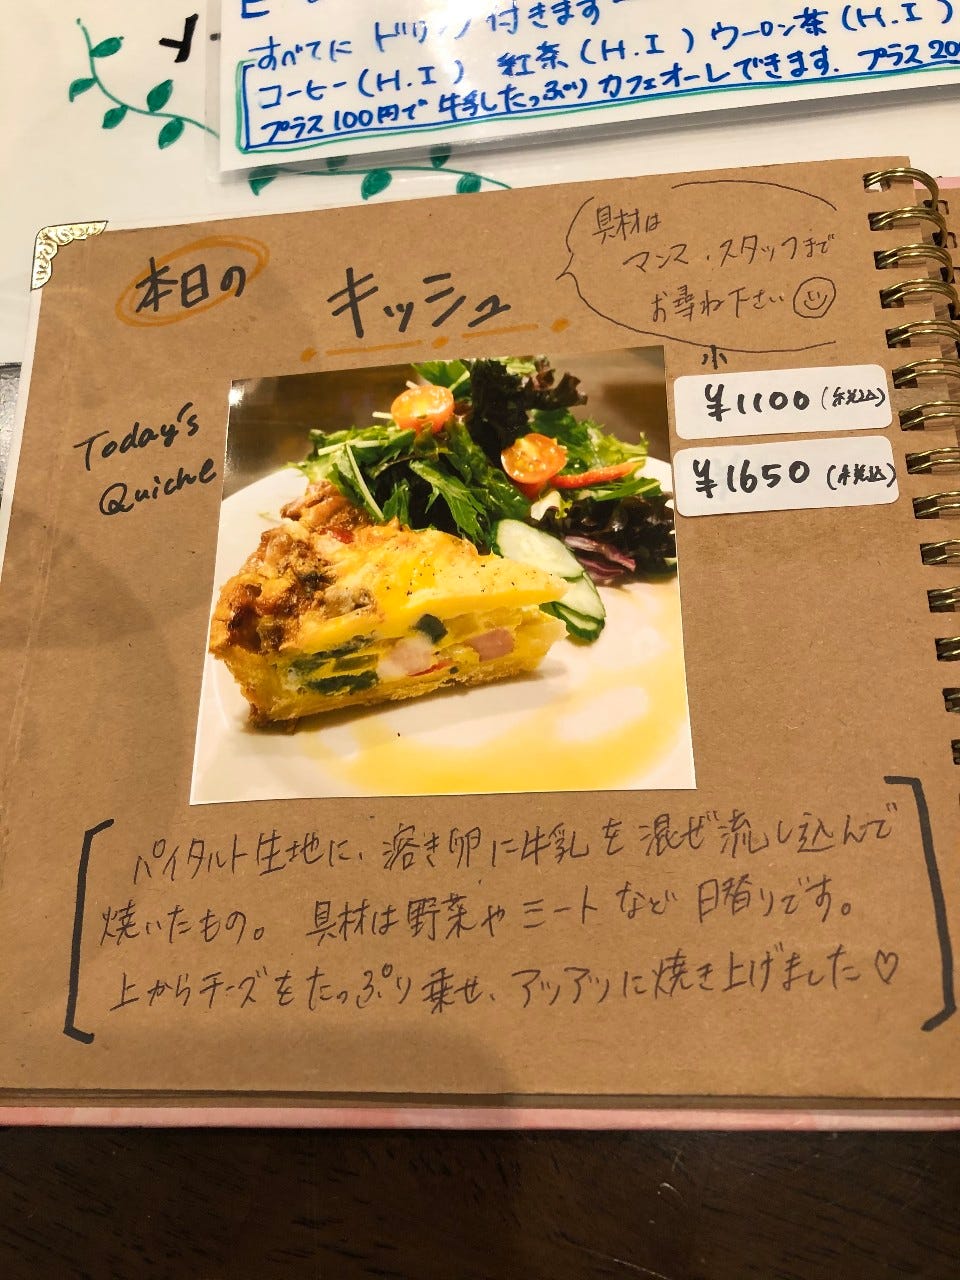 すべてに ドリンク 付きます
コーヒー(H.I) 紅茶(H.I) ウーロン茶(H.I)
プラス100円で 牛乳たっぷり カフェオーレできます. プラス20
本日の
キッシュ
具材は
マンス・スタッフまで
お尋ね下さい
小
¥1100(税込)
¥1650(税込)
Today's
Quiche
パイタルト生地に、溶き卵に牛乳を混ぜ流し込んで
焼いたもの。 具材は野菜やミートなど日替りです。
上からチーズをたっぷり乗せ、アツアツに焼き上げました♡